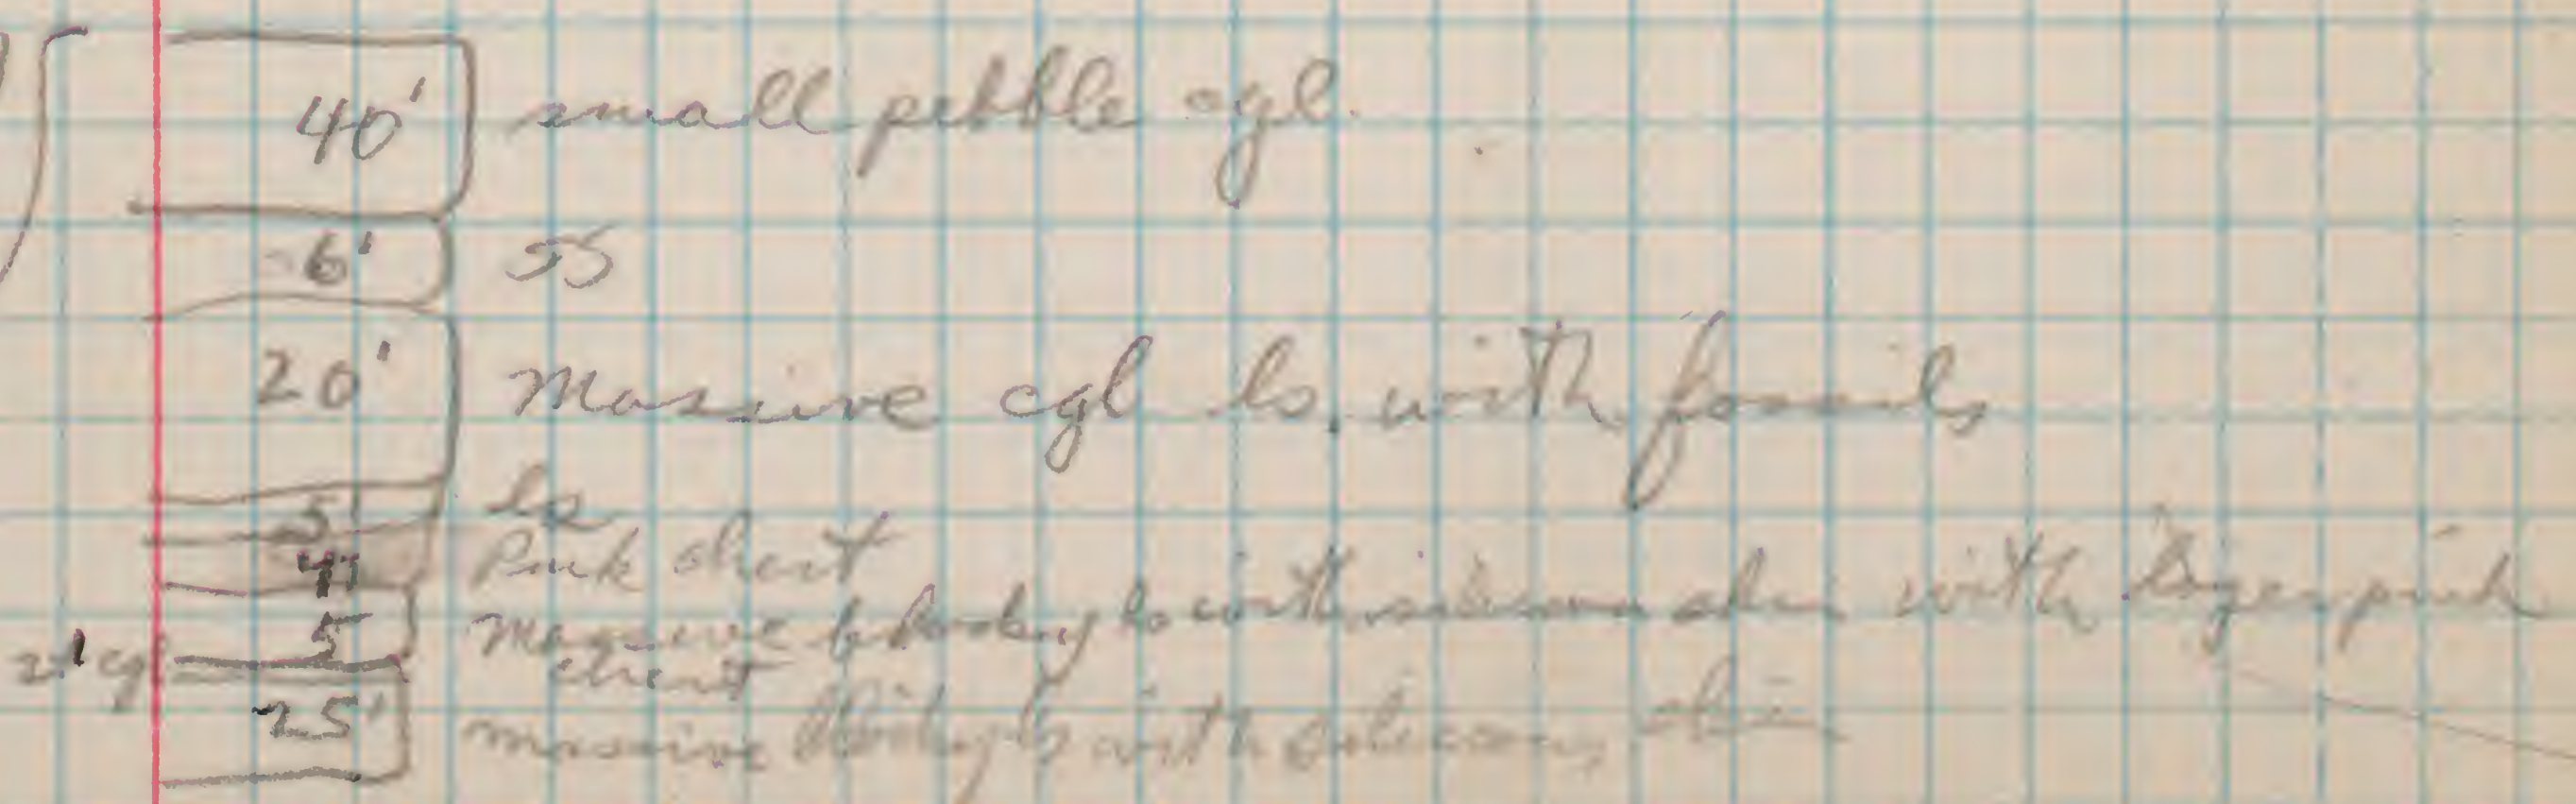 40' small pebble cgl.
6' SS
20' Massive cgl ls. with fossils
5' ls
4' Pink chert
5 Massive blocky ls with siliceous skin with pink
chert
2.1 cgl
25' massive blocky ls with siliceous skin